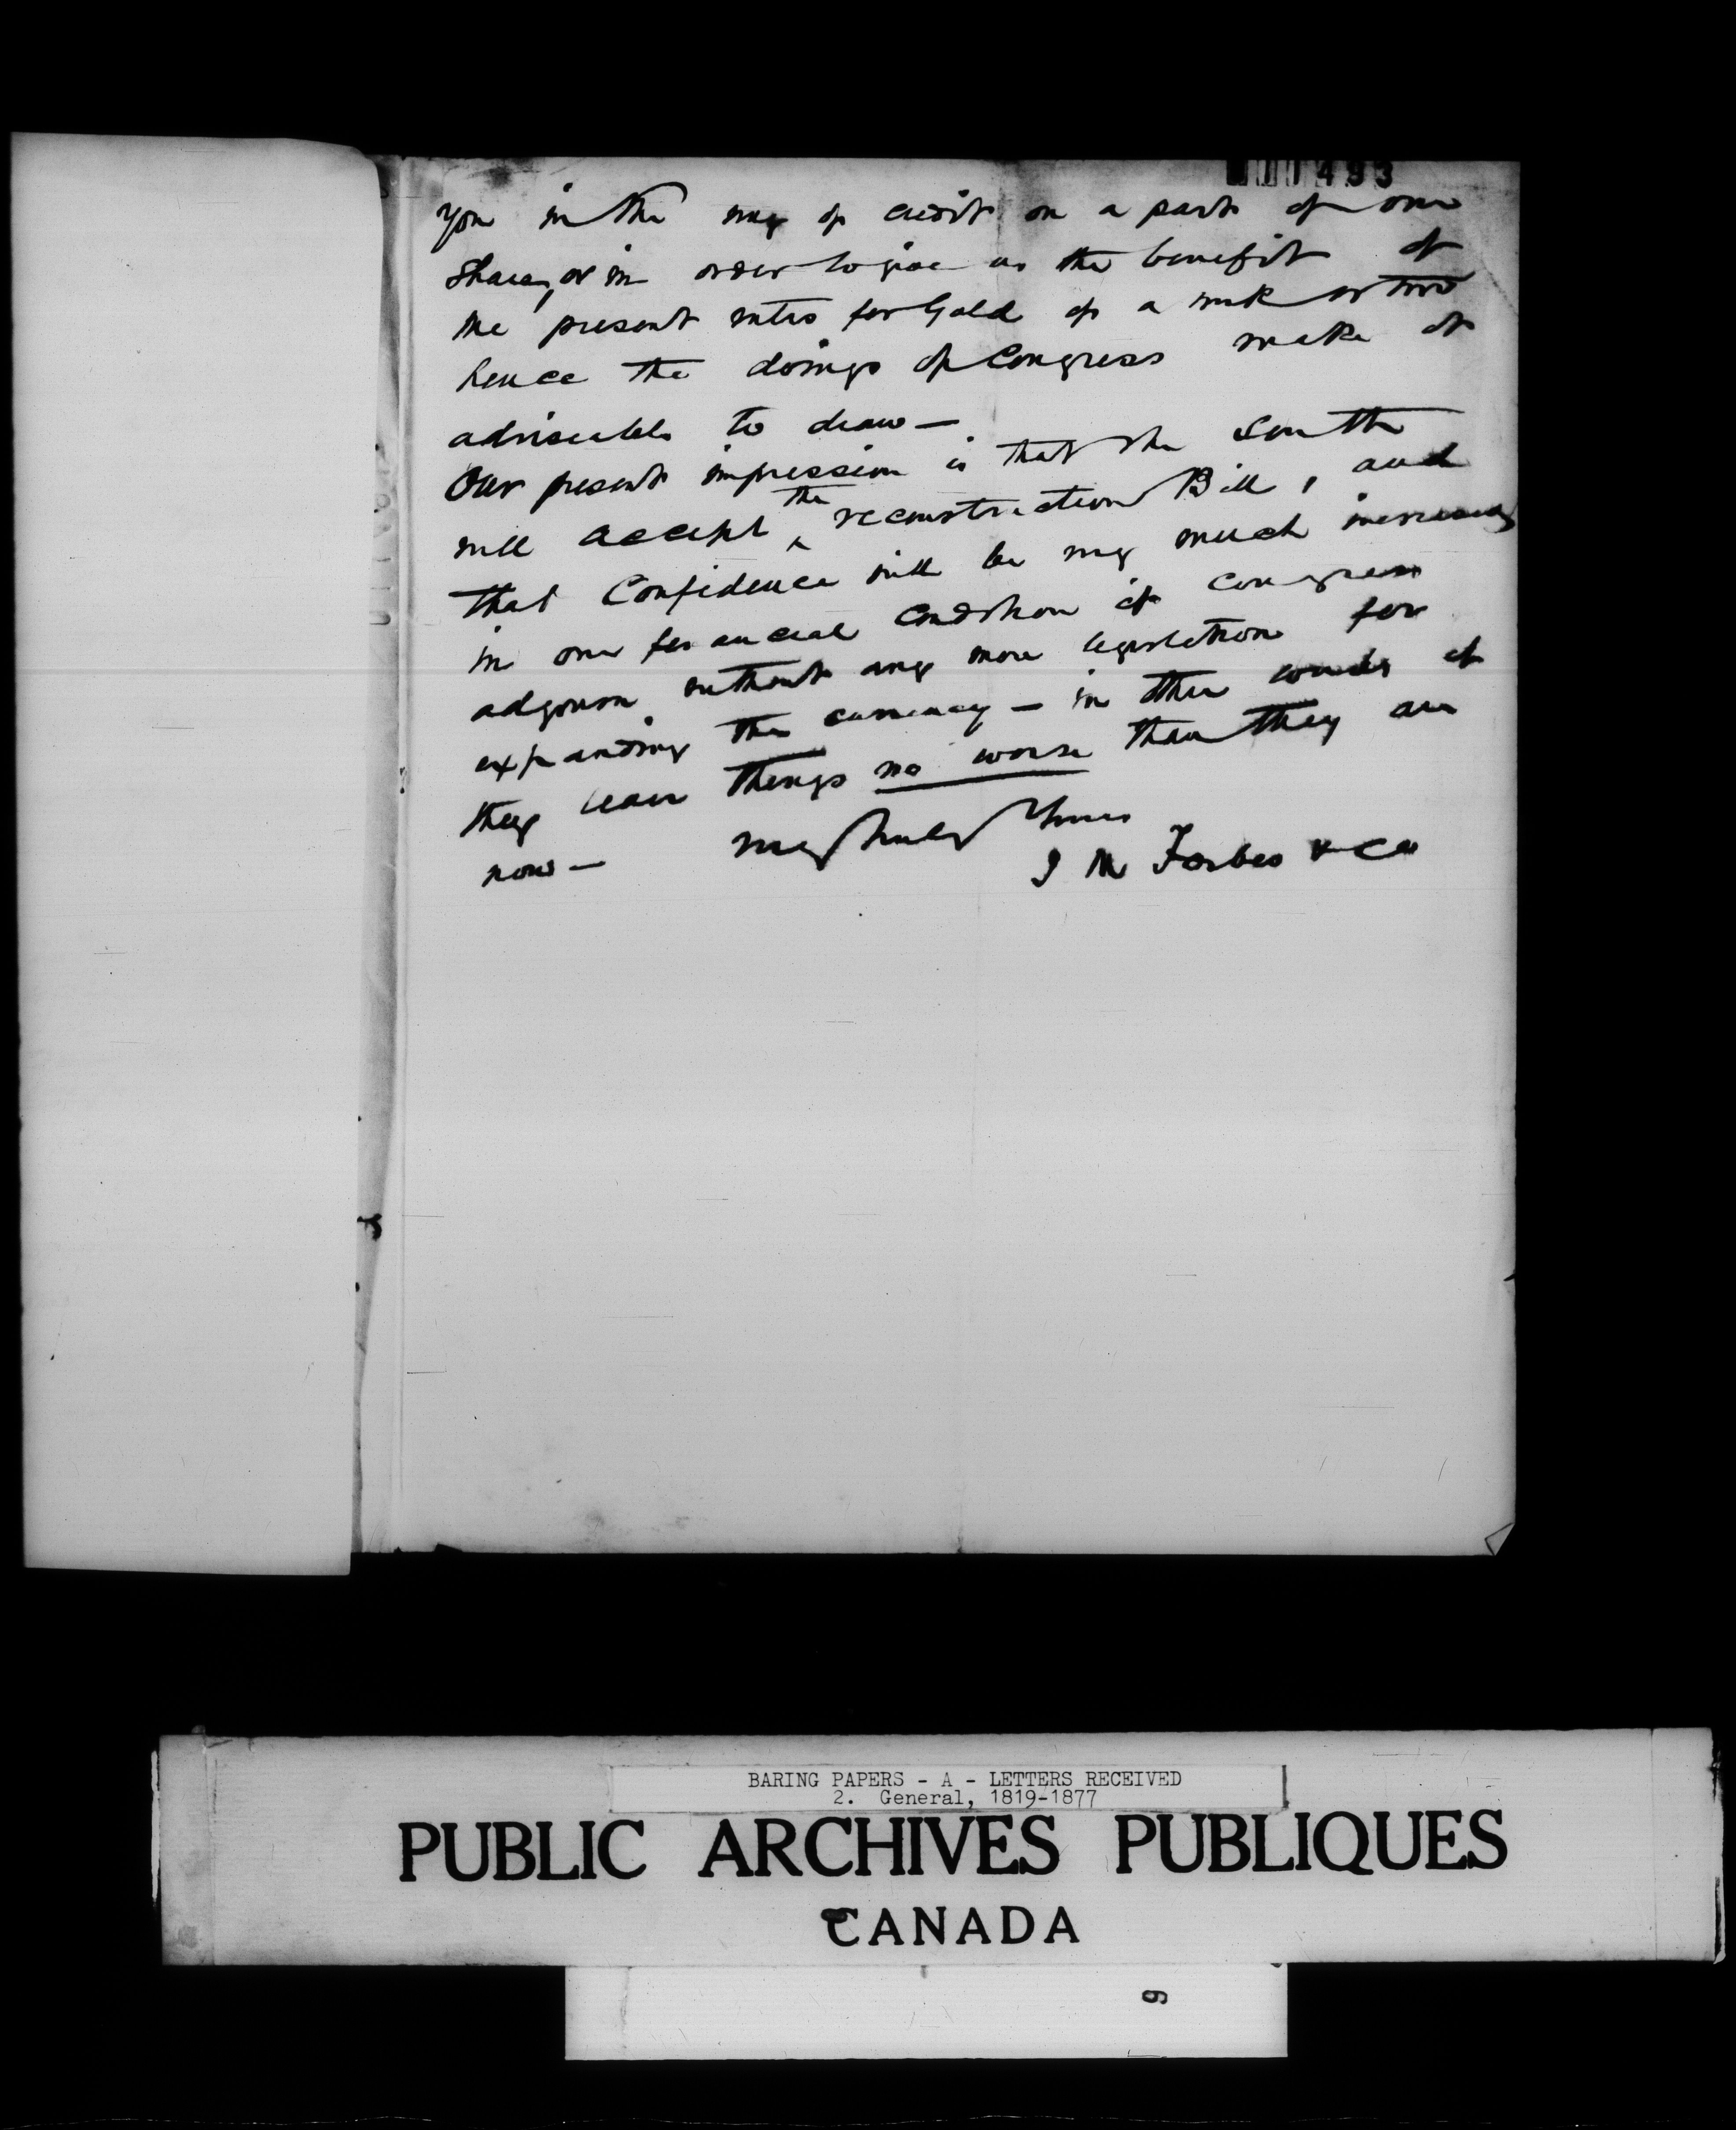 493
you in the way of credit on a part of our
share, or in order to give us the benefit of
the present rates for Gold if a week or two
hence the doings of Congress make it
adviseable to draw —
Our present impression is that the South
will accept the reconstruction Bill, and
that Confidence will be very much increased
in our financial condition if congress
adjourn without any more legislation for
expanding the currency — in other words if
they leave things no worse than they are
now —
very truly Yours
J M Forbes & Co
BARING PAPERS - A - LETTERS RECEIVED
2. General, 1819-1877
PUBLIC ARCHIVES PUBLIQUES
CANADA
9